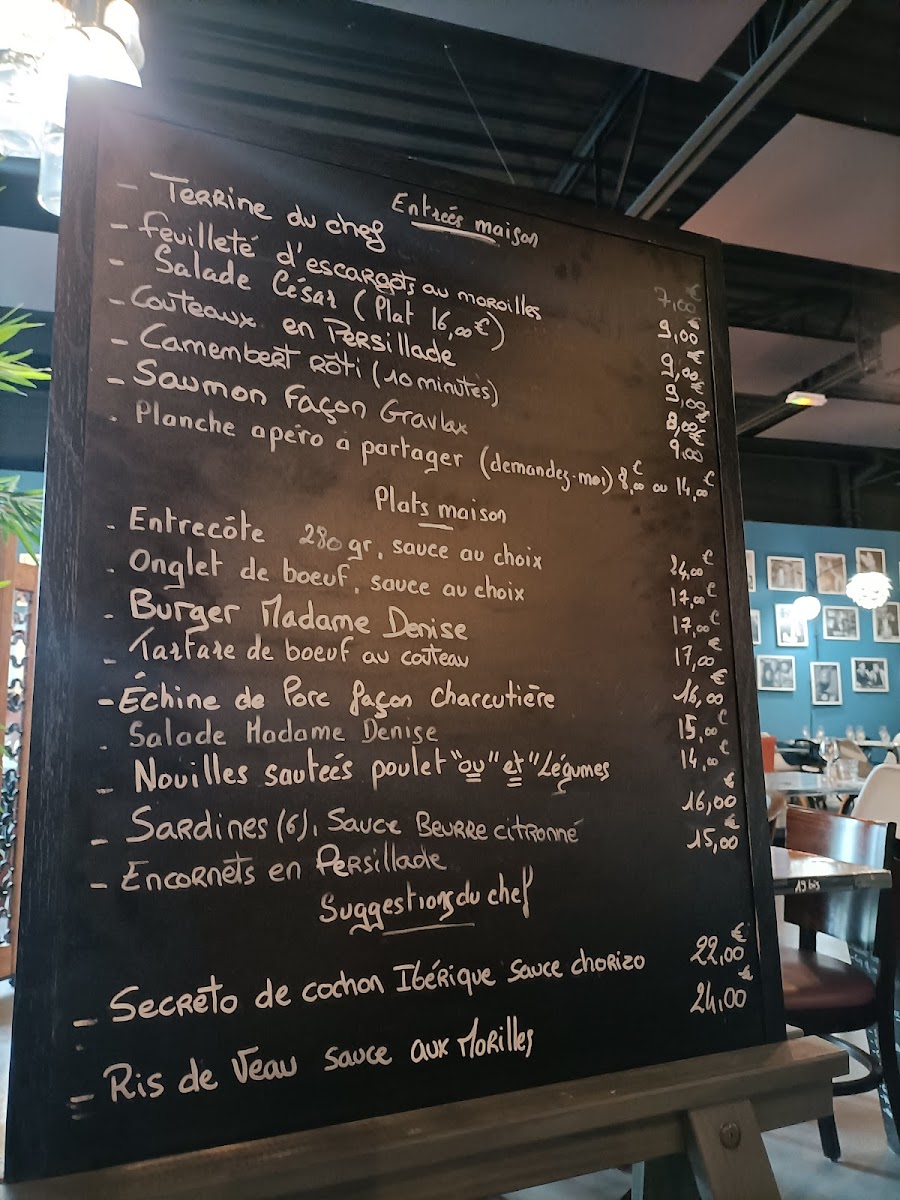 Entrées maison
- Terrine du chef 7,00€
- feuilleté d'escargots au maroilles 9,00€
- Salade César (Plat 16,00€) 9,00€
- Couteaux en Persillade 9,00€
- Camembert Rôti (10 minutes) 8,00€
- Saumon Façon Gravlax 9,00€
- Planche apéro à partager (demandez-moi) 8,00€ ou 14,00€
Plats maison
- Entrecôte 280gr, sauce au choix 24,00€
- Onglet de boeuf, sauce au choix 17,00€
- Burger Madame Denise 17,00€
- Tartare de boeuf au couteau 17,00€
- Échine de Porc façon charcutière 16,00€
- Salade Madame Denise 15,00€
- Nouilles sautées poulet "ou" et "Légumes 14,00€
- Sardines (6), Sauce Beurre citronné 16,00€
- Encornets en Persillade 15,00€
Suggestions du chef
- Secreto de cochon Ibérique sauce chorizo 22,00€
- Ris de Veau sauce aux Morilles 24,00€
19 bis